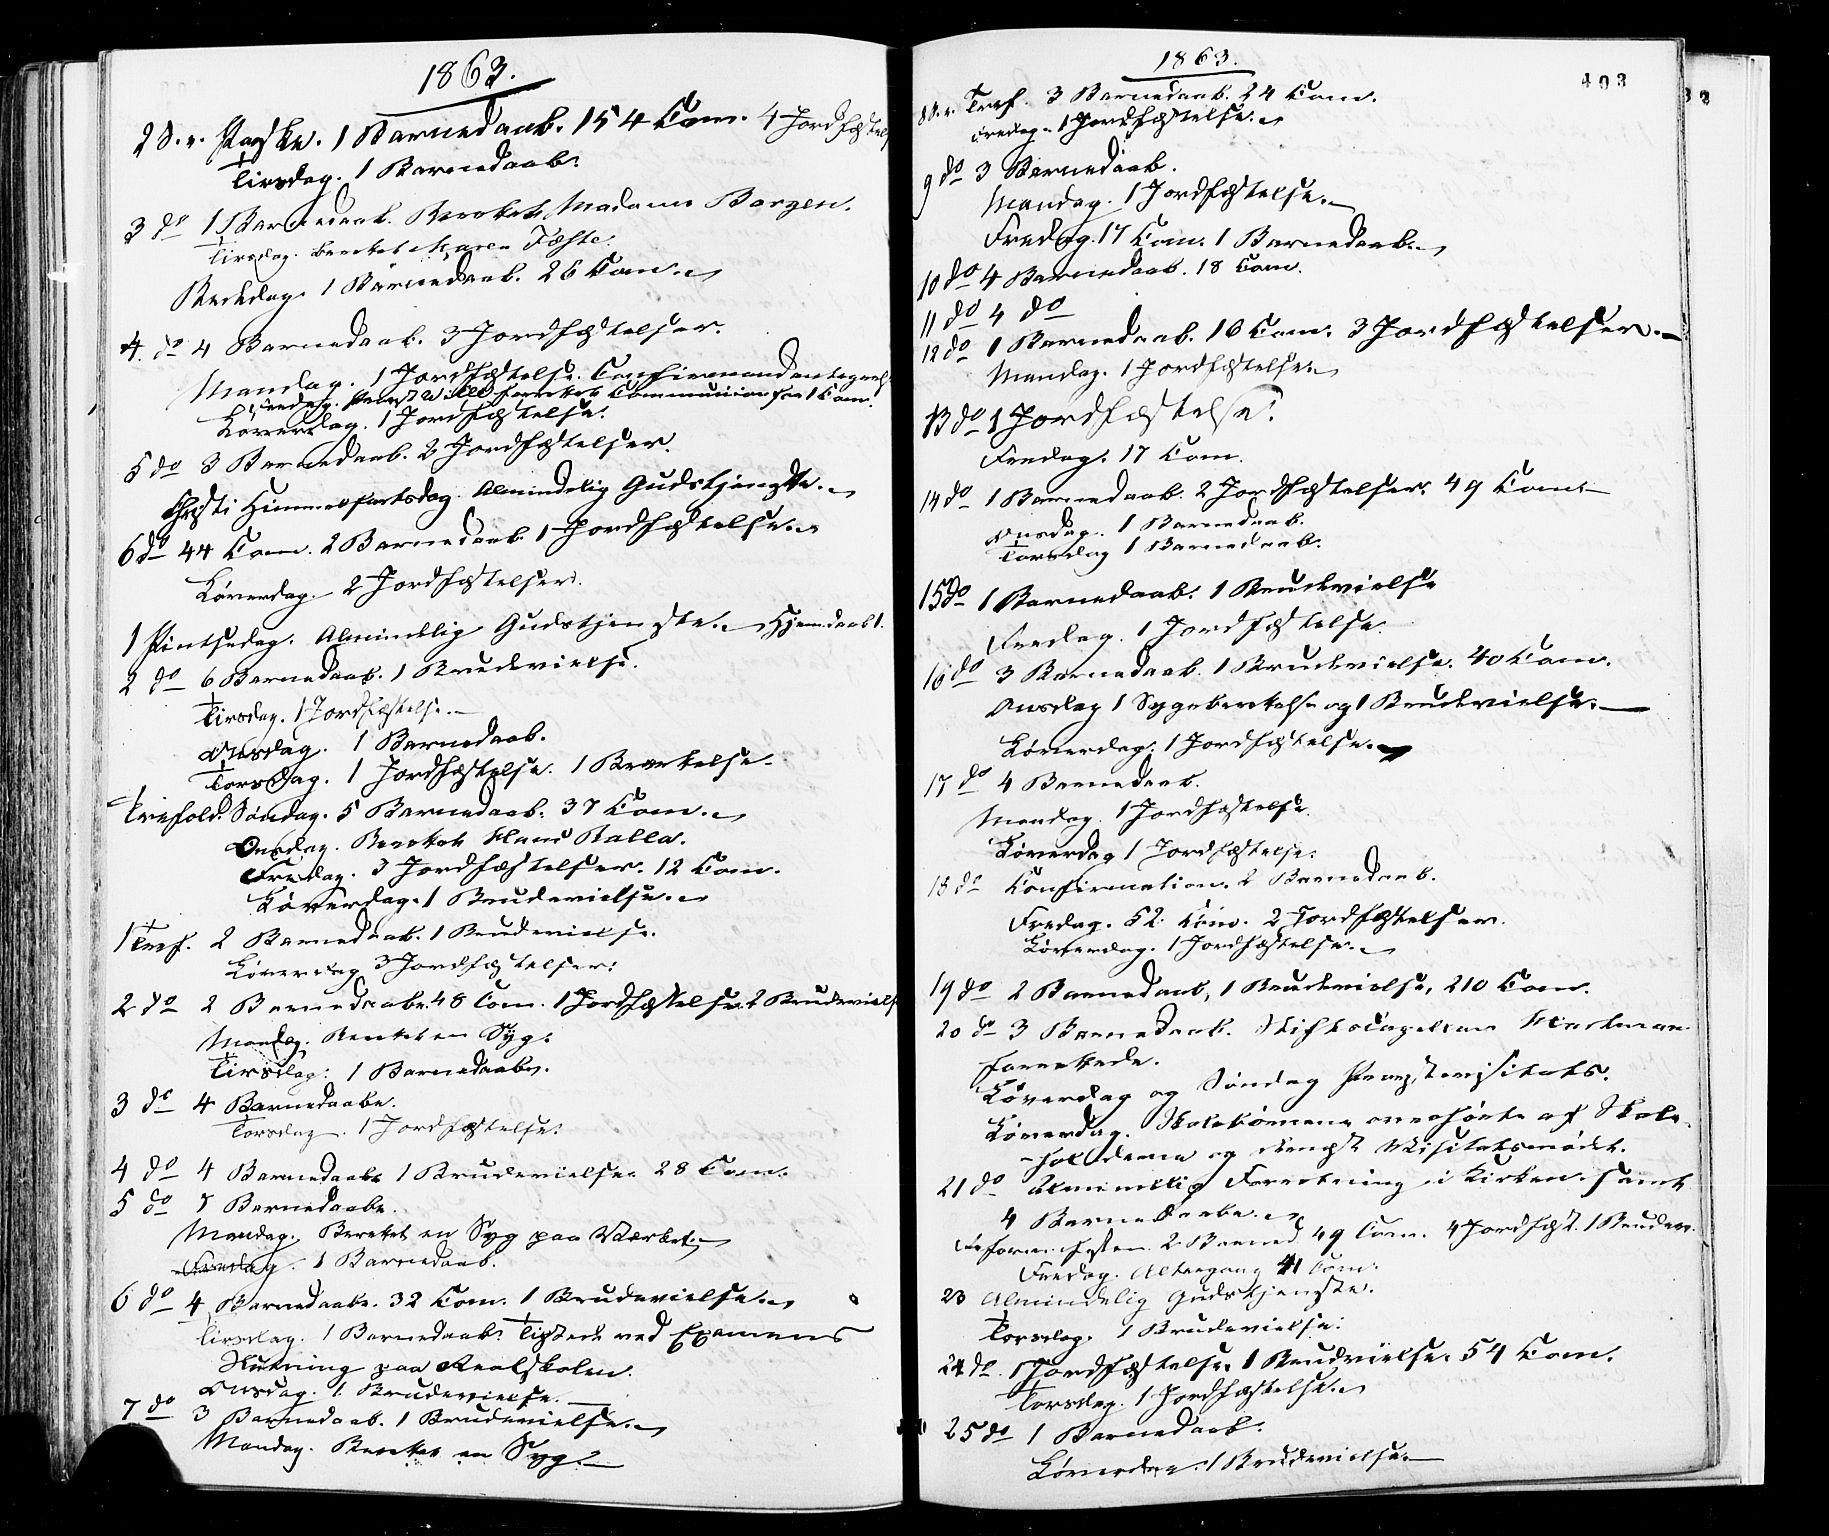 1863.
2 S. e. Paaske. 1 Barnedaab. 154 Com. 4 Jordfæstels
Tirsdag. 1 Barnedaab.
3 do 1 Barnedaab. Berettet Madame Borgen.
Tirsdag. berettet Karen Fæste.
Bededag. 1 Barnedaab. 26 Com.
4. do 4 Barnedaab. 3 Jordfæstelser.
Mandag. 1 Jordfæstelse. Confirmandantegnels
Præst Wille forrettet Communion for 1 Com.
Løverdag. 1 Jordfæstelse.
5 do 3 Barnedaab. 2 Jordfæstelser.
Christi Himmelfartsdag. Almindelig Gudstjeneste.
6 do 44 Com. 2 Barnedaab. 1 Jordfæstelse.
Løverdag. 2 Jordfæstelser.
1 Pintsedag. Almindelig Gudstjeneste. Hjemdaab 1.
2 do 6 Barnedaab. 1 Brudevielse.
Tirsdag. 1 Jordfæstelse.
Onsdag. 1 Barnedaab.
Torsdag. 1 Jordfæstelse. 1 Berettelse.
Trefold. Søndag. 5 Barnedaab. 37 Com.
Onsdag. Berettet Hans Balla.
Fredag. 3 Jordfæstelser. 12 Com.
Løverdag. 1 Brudevielse.
1 Tref. 2 Barnedaab. 1 Brudevielse.
Løverdag 3 Jordfæstelser.
2 do 2 Barnedaabe. 48 Com. 1 Jordfæstelse. 2 Brudeviels
Mandag. Berettet en Syg.
Tirsdag. 1 Barnedaabe.
3 do 4 Barnedaabe.
Torsdag. 1 Jordfæstelse.
4 do 4 Barnedaabe 1 Brudevielse. 28 Com.
5 do 7 Barnedaabe.
Mandag. Berettet en Syg paa Værket.
Fredag. 1 Barnedaab.
6 do 4 Barnedaabe. 32 Com. 1 Brudevielse.
Tirsdag. 1 Barnedaab. Tilstede ved Examens
Slutning paa Realskolen.
Onsdag. 1 Brudevielse.
7 do 3 Barnedaab. 1 Brudevielse.
Mandag. Berettet en Syg.
1863.
403
8 S. e. Tref. 3 Barnedaab. 24 Com.
Fredag. 1 Jordfæstelse.
9 do 3 Barnedaab.
Mandag. 1 Jordfæstelse.
Fredag. 17 Com. 1 Barnedaab.
10 do 4 Barnedaab. 18 Com.
11 do 4 do
12 do 1 Barnedaab. 16 Com. 3 Jordfæstelser.
Mandag. 1 Jordfæstelse.
13 do 1 Jordfæstelse.
Fredag. 17 Com.
14 do 1 Barnedaab. 2 Jordfæstelser. 49 Com.
Onsdag. 1 Barnedaab.
Torsdag 1 Barnedaab.
15 do 1 Barnedaab. 1 Brudevielse
Fredag. 1 Jordfæstelse.
16 do 3 Barnedaab. 1 Brudevielse. 40 Com.
Onsdag 1 Sygeberettelse og 1 Brudevielse.
Løverdag. 1 Jordfæstelse.
17 do 4 Barnedaab.
Mandag. 1 Jordfæstelse.
Løverdag 1 Jordfæstelse.
18 do Confirmation. 2 Barnedaab.
Fredag. 52 Com. 2 Jordfæstelser.
Løverdag. 1 Jordfæstelse.
19 do 2 Barnedaab, 1 Brudevielse, 210 Com.
20 do 3 Barnedaab. Stiftscapellan
forrettede.
Løverdag og Søndag Provstevisitats.
Løverdag. Skolebørnene overhørte af Skole-
holderne og Visitatsmødet.
21 do Almindelig Forretning i Kirken samt
4 Barnedaabe.
Reform. festen. 2 Barned. 49 Com. 4 Jordfæst. 1 Brudev.
Fredag. Altergang 41 Com.
23 Almindelig Gudstjeneste.
Torsdag. 1 Brudevielse.
24 do. 1 Jordfæstelse. 1 Brudvielse. 54 Com.
Torsdag. 1 Jordfæstelse.
25 do 1 Barnedaab.
Løverdag. 1 Brudevielse.